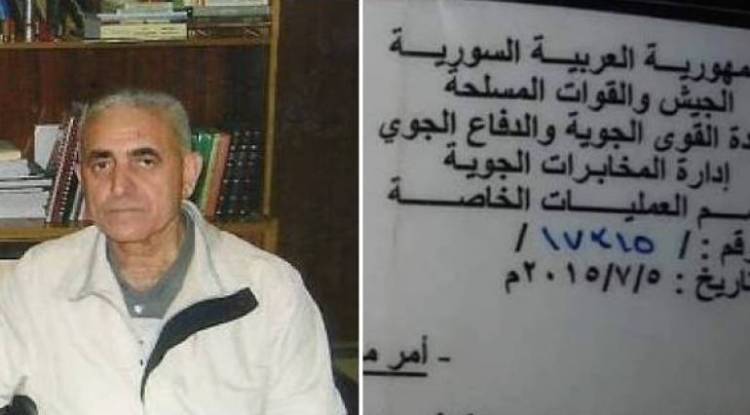 مهورية العربية السورية
الجيش والقوات المسلحة
دة القوى الجوية والدفاع الجوي
إدارة المخابرات الجوية
م العمليات الخاصة
رقم : / ١٧٤١٥ /
تاريخ : ٢٠١٥/٧/٥م
- أمر م